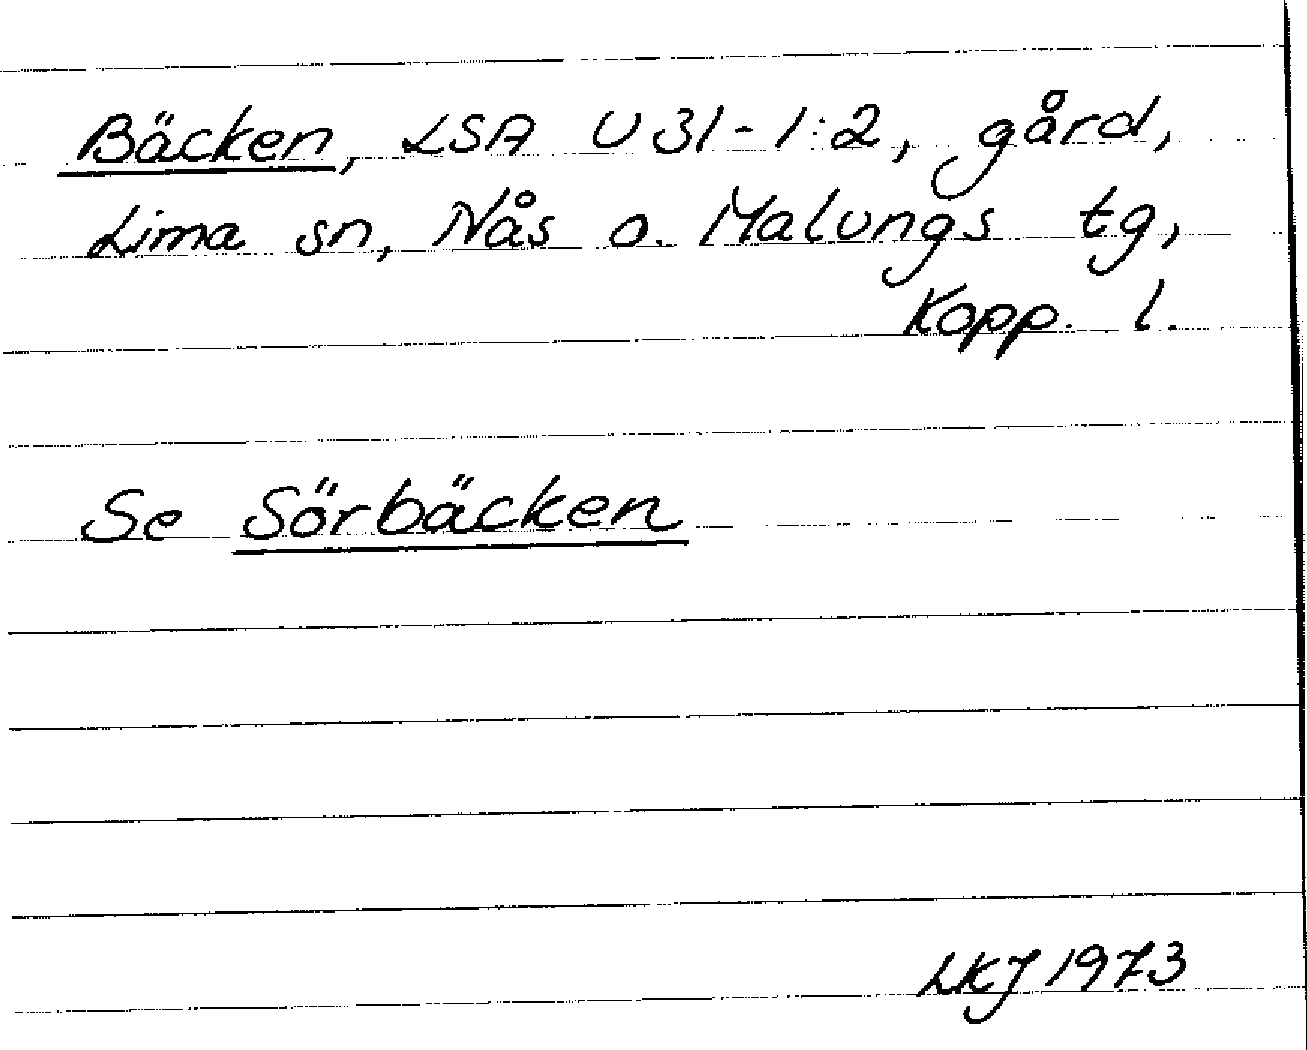 Bäcken, LSA U 31-1:2, gård,
Lima sn, Nås o. Malungs tg,
Kopp. l.
Se Sörbäcken
LKJ 1973